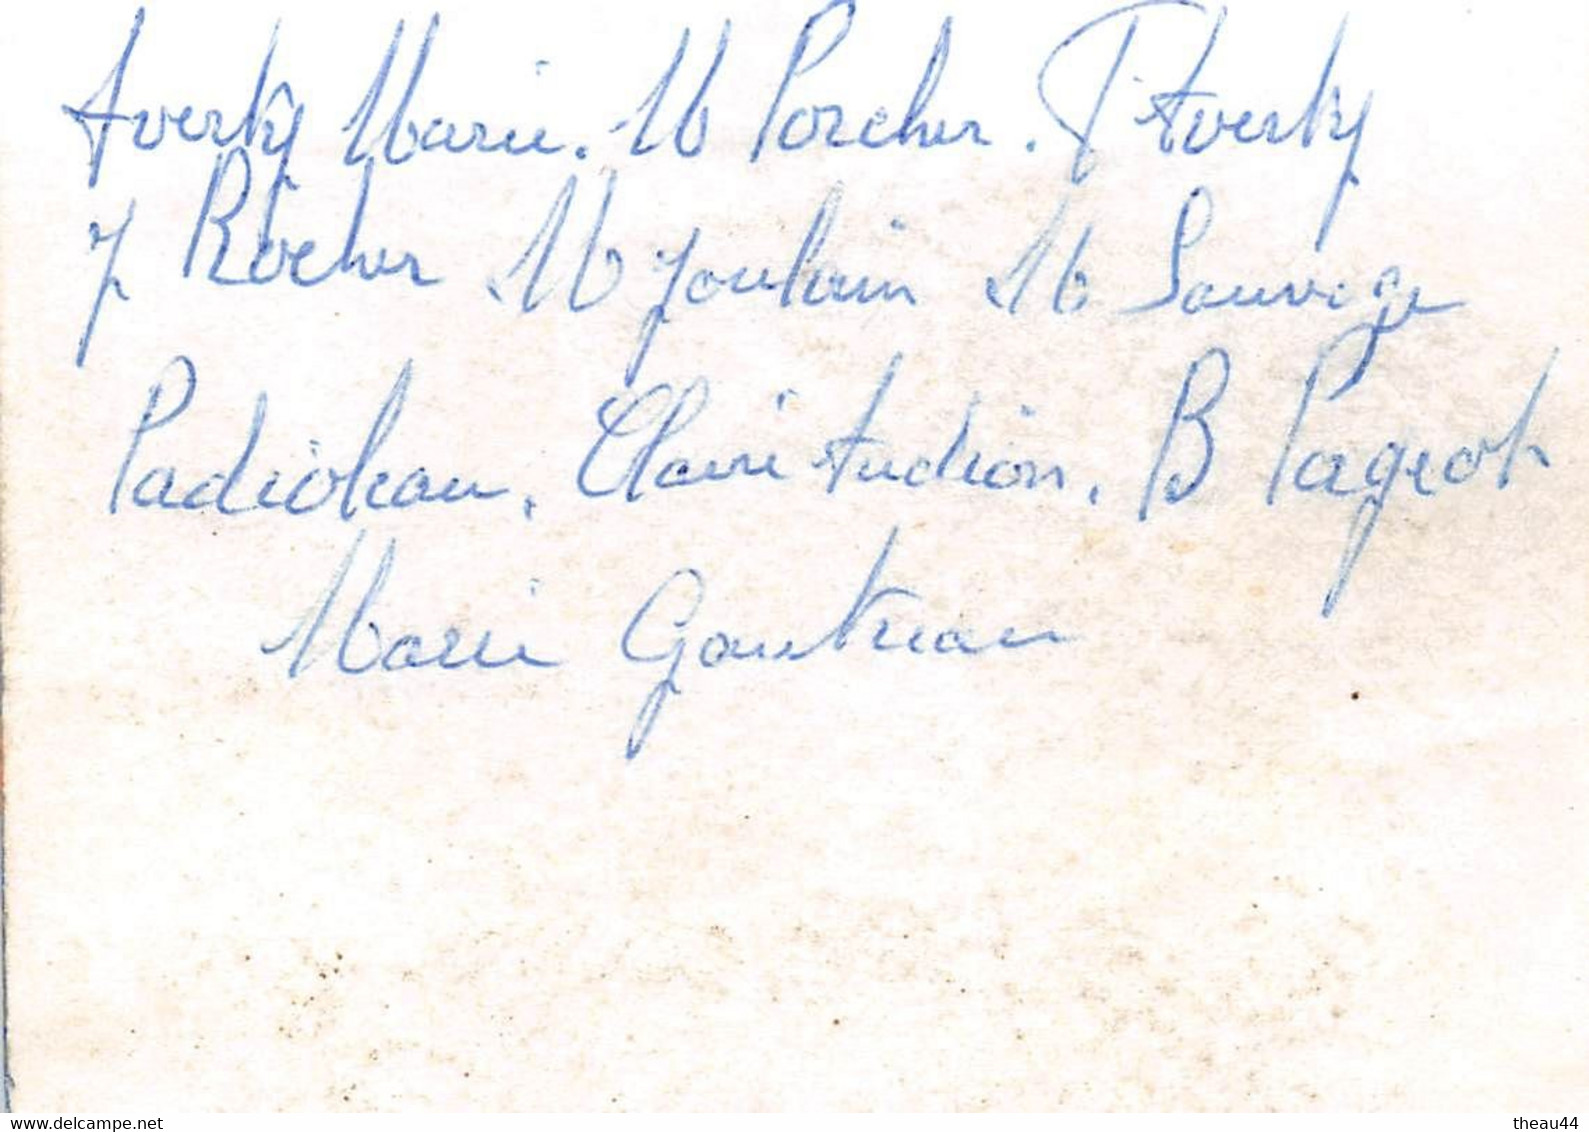 Averty Marie. M Porcher. P Averty
J Rocher M Joulain M Sauvage
Padioleau, Claire Audion, B Pageot
Marie Gautreau
the-movie-fan.delcampe.net
theau44